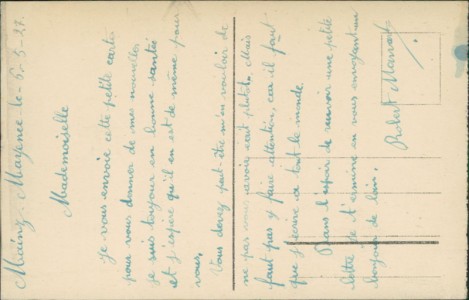 Mainz - Mayence le - 6-5-27.
Mademoiselle
Je vous envoie cette petite carte
pour vous donner de mes nouvelles
je suis toujours en bonne santée
et j'espère qu'il en est de même pour
vous,
Vous devez peut-être m'en vouloir de
ne pas vous avoir ecrit plutôt, Mais
faut pas y faire attention, car il faut
que j'écrire à tout le monde.
Dans l'espoir de recevoir une petite
lettre je termine en vous envoyant un
bonjour de loin.
Robert